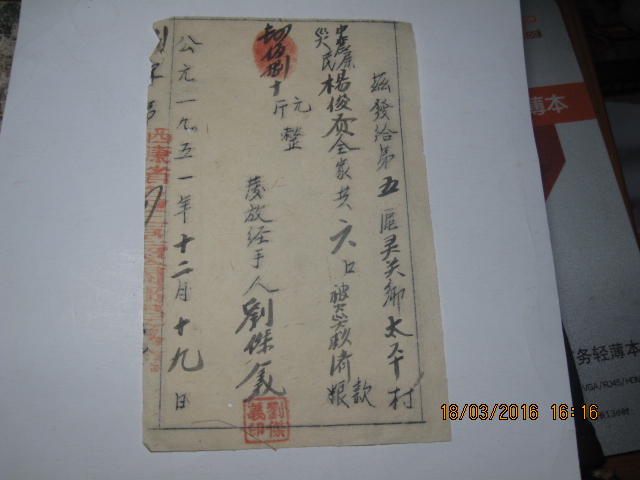 茲發給第五區灵关鄉太平村
中農
災民楊俊
全家共六口被災救济款
粮
元
捌十斤整
發放经手人劉傑義
劉傑
義印
公元一九五一年十二月十九日
西康省
薄本
务轻薄本
VGA/RJ45/HDMI
18/03/2016 16:16